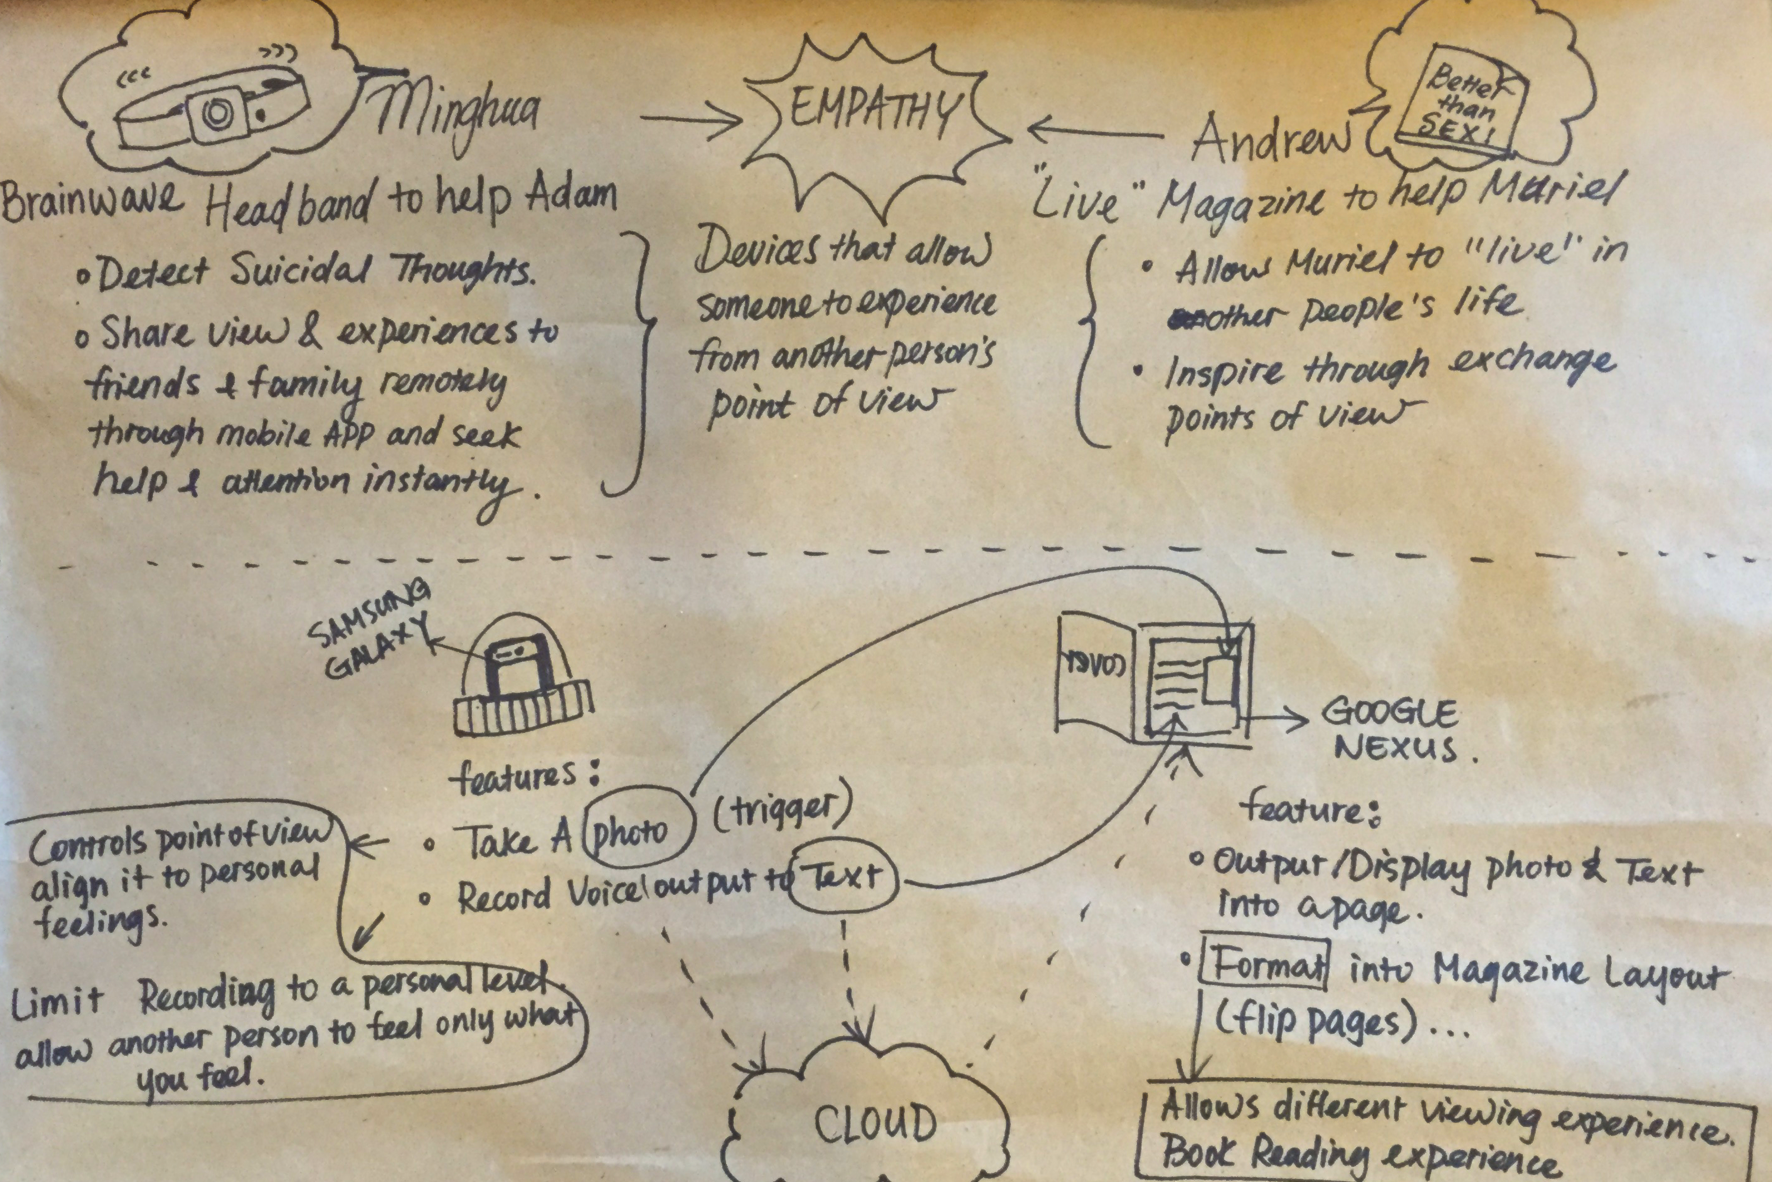 Minghua
EMPATHY
Andrew
Better
than
SEX!
Brainwave Headband to help Adam
• Detect Suicidal Thoughts.
• Share view & experiences to
friends & family remotely
through mobile APP and seek
help & attention instantly.
Devices that allow
someone to experience
from another person's
point of view
"Live" Magazine to help Muriel
• Allow Muriel to "live" in
other people's life
• Inspire through exchange
points of view
SAMSUNG
GALAXY
features:
• Take A photo (trigger)
• Record Voice/output to Text
Controls point of view
align it to personal
feelings.
Limit Recording to a personal level.
allow another person to feel only what
you feel.
CLOUD
COVER
GOOGLE
NEXUS.
feature:
• Output/Display photo & Text
into a page.
• Format into Magazine Layout
(flip pages)...
Allows different viewing experience.
Book Reading experience